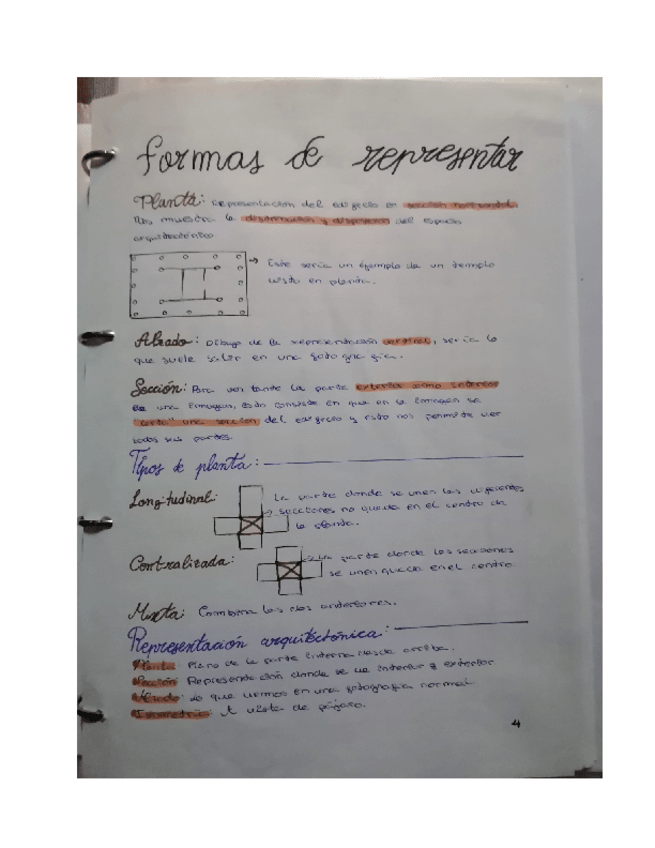 formas de representar
Planta: Representación del edificio en sección horizontal.
Nos muestra la distribución y disposición del espacio
arquitectónico
Este sería un ejemplo de un templo
visto en planta.
Alzado: Dibujo de la representación vertical, sería lo
que suele salir en una fotografía.
Sección: Para ver tanto la parte exterior como interior
de una imagen, esto consiste en que en la imagen se
"corta" una sección del edificio y esto nos permite ver
todas sus partes.
Tipos de planta:
Longitudinal:
La parte donde se unen las diferentes
secciones no queda en el centro de
la planta.
Centralizada:
La parte donde las secciones
se unen queda en el centro
Mixta: Combina las dos anteriores.
Representación arquitectónica:
Planta: Plano de la parte interna desde arriba.
Sección: Representación donde se ve interior y exterior
Alzado: Lo que vemos en una fotografía normal
Isometría: A vista de pájaro.
4